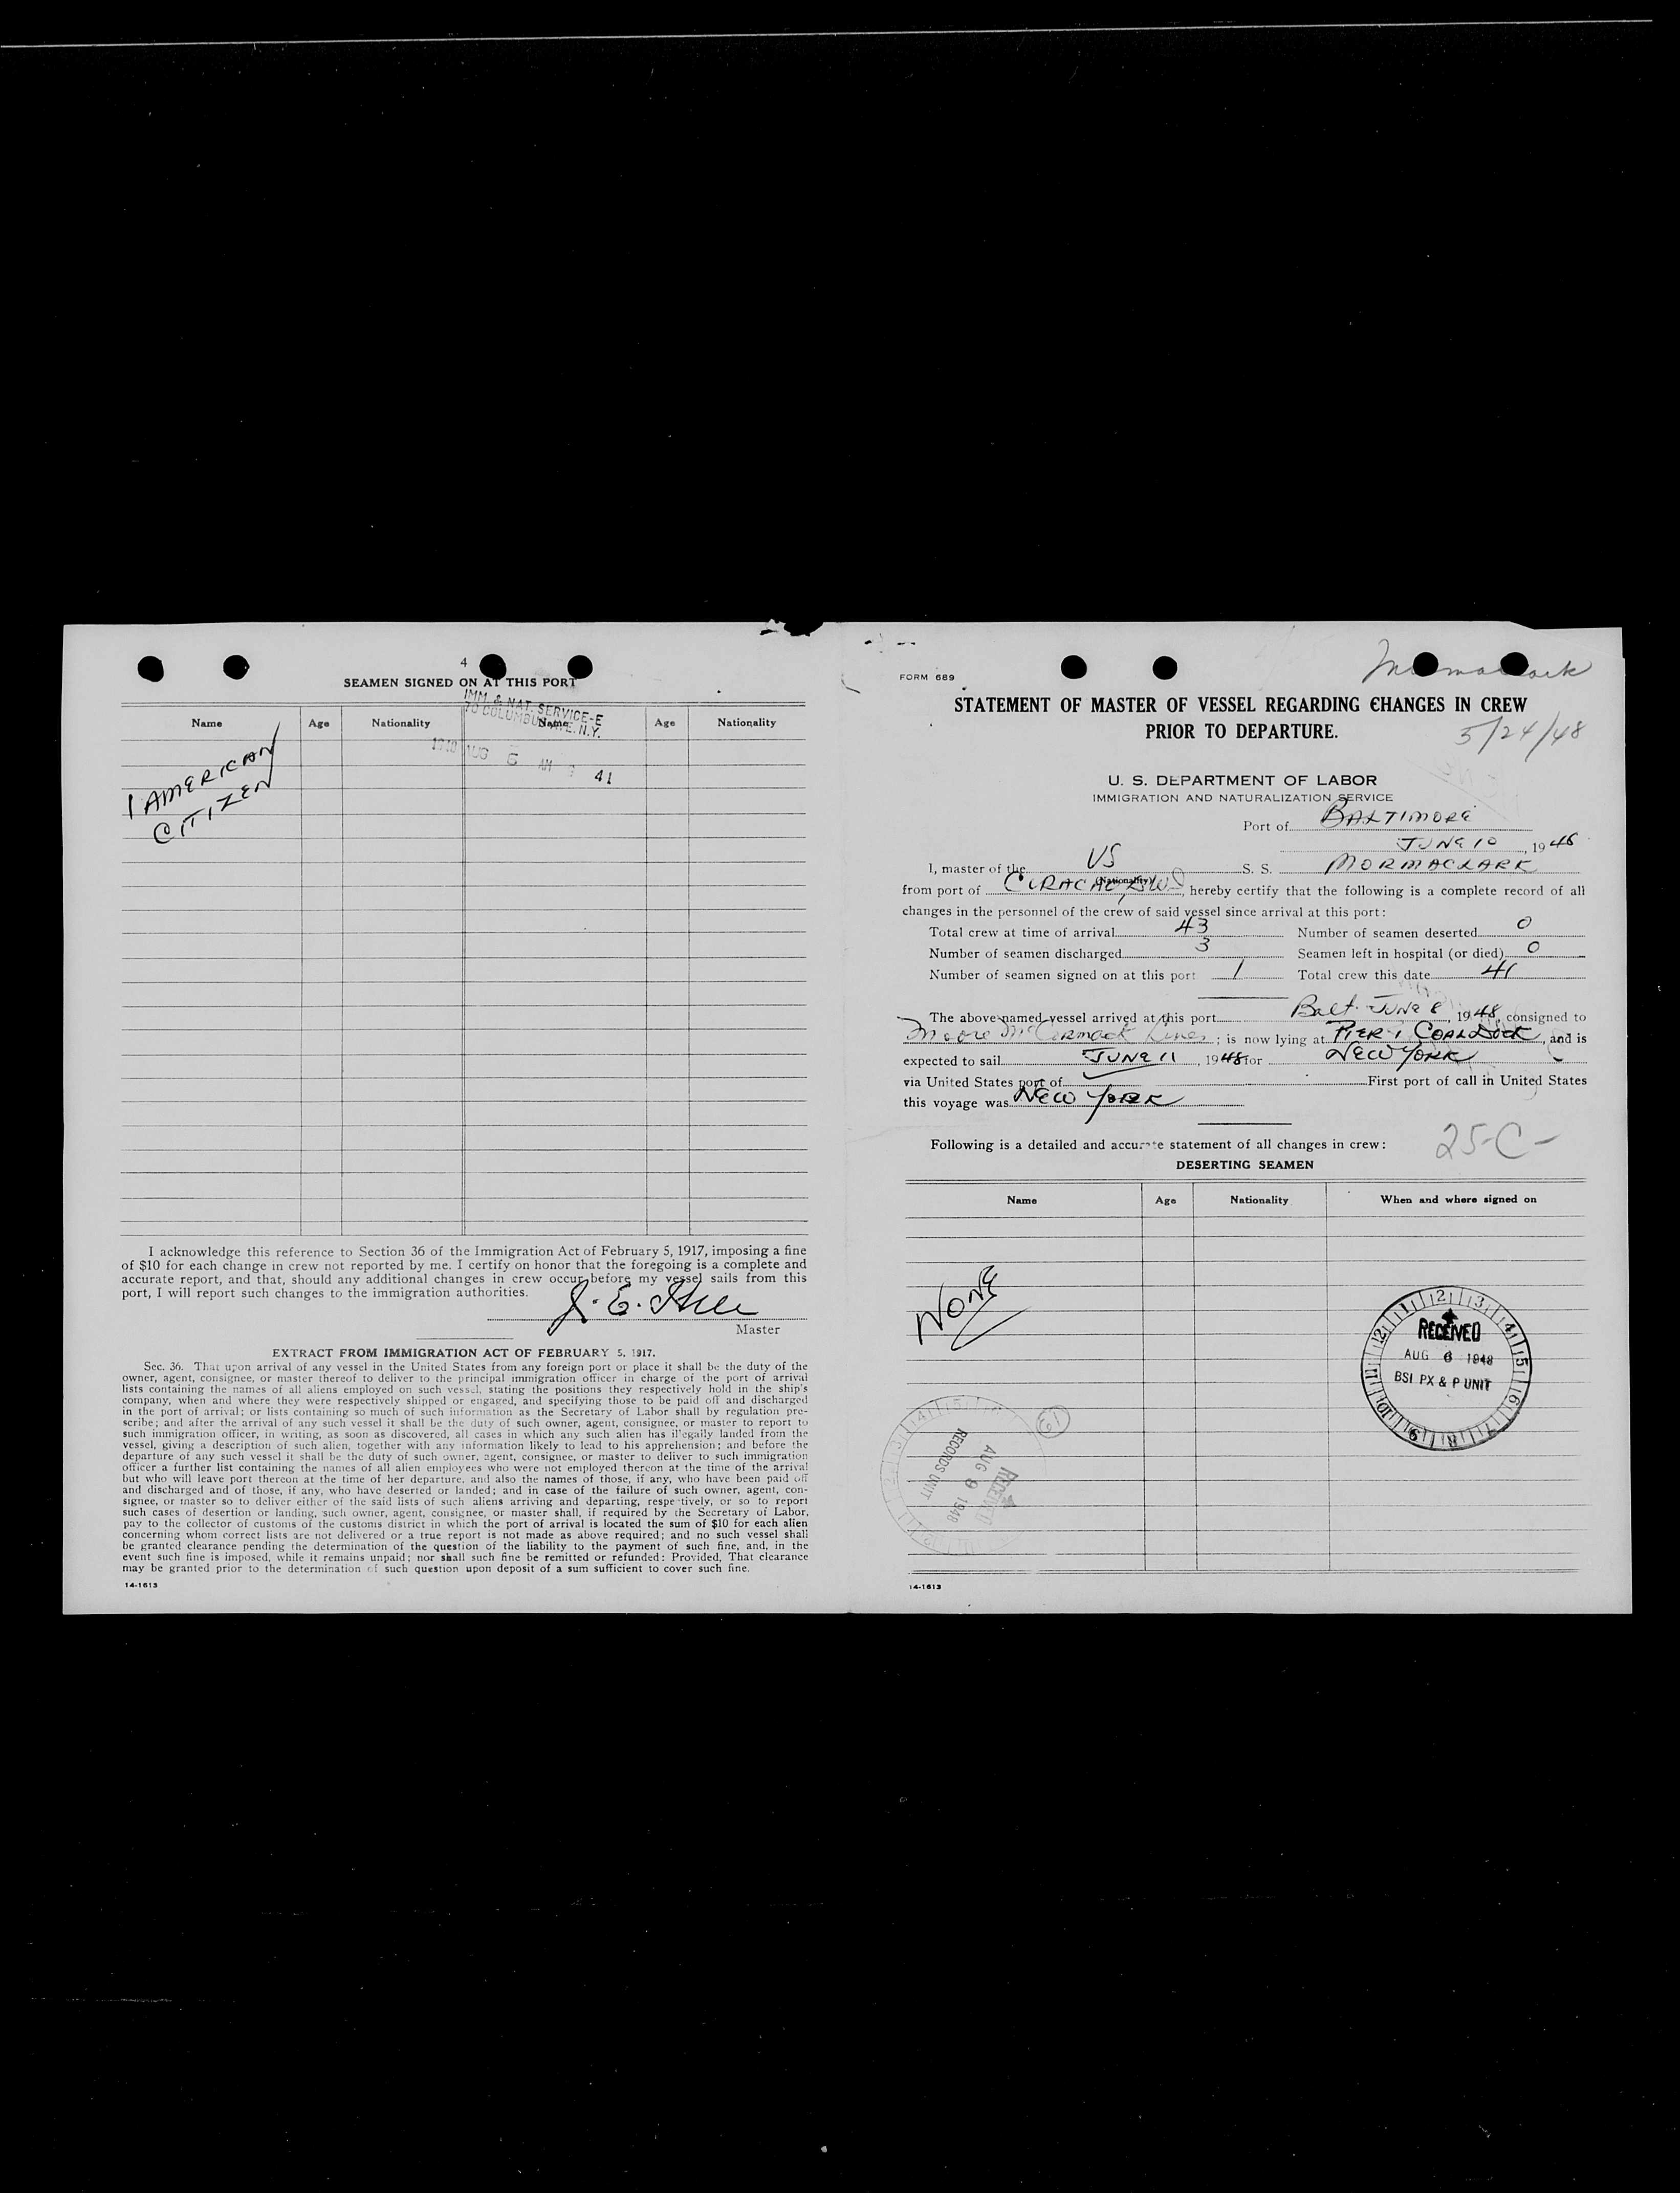 4
SEAMEN SIGNED ON AT THIS PORT
IMM. & NAT. SERVICE-E
70 COLUMBUS AVE. N.Y.
Name Age Nationality Name Age Nationality
AUG 6 AM 9 41
1 AMERICAN
CITIZEN
I acknowledge this reference to Section 36 of the Immigration Act of February 5, 1917, imposing a fine
of $10 for each change in crew not reported by me. I certify on honor that the foregoing is a complete and
accurate report, and that, should any additional changes in crew occur before my vessel sails from this
port, I will report such changes to the immigration authorities.
J. E.
Master
EXTRACT FROM IMMIGRATION ACT OF FEBRUARY 5, 1917.
Sec. 36. That upon arrival of any vessel in the United States from any foreign port or place it shall be the duty of the
owner, agent, consignee, or master thereof to deliver to the principal immigration officer in charge of the port of arrival
lists containing the names of all aliens employed on such vessel, stating the positions they respectively hold in the ship's
company, when and where they were respectively shipped or engaged, and specifying those to be paid off and discharged
in the port of arrival; or lists containing so much of such information as the Secretary of Labor shall by regulation pre-
scribe; and after the arrival of any such vessel it shall be the duty of such owner, agent, consignee, or master to report to
such immigration officer, in writing, as soon as discovered, all cases in which any such alien has illegally landed from the
vessel, giving a description of such alien, together with any information likely to lead to his apprehension; and before the
departure of any such vessel it shall be the duty of such owner, agent, consignee, or master to deliver to such immigration
officer a further list containing the names of all alien employees who were not employed thereon at the time of the arrival
but who will leave port thereon at the time of her departure, and also the names of those, if any, who have been paid off
and discharged and of those, if any, who have deserted or landed; and in case of the failure of such owner, agent, con-
signee, or master so to deliver either of the said lists of such aliens arriving and departing, respectively, or so to report
such cases of desertion or landing, such owner, agent, consignee, or master shall, if required by the Secretary of Labor,
pay to the collector of customs of the customs district in which the port of arrival is located the sum of $10 for each alien
concerning whom correct lists are not delivered or a true report is not made as above required; and no such vessel shall
be granted clearance pending the determination of the question of the liability to the payment of such fine, and, in the
event such fine is imposed, while it remains unpaid; nor shall such fine be remitted or refunded: Provided, That clearance
may be granted prior to the determination of such question upon deposit of a sum sufficient to cover such fine.
14-1613
FORM 689
STATEMENT OF MASTER OF VESSEL REGARDING CHANGES IN CREW
PRIOR TO DEPARTURE.
5/24/48
U. S. DEPARTMENT OF LABOR
IMMIGRATION AND NATURALIZATION SERVICE
Port of BALTIMORE
JUNE 10, 1948
I, master of the US S. S. MORMACLARK
(Nationality)
from port of CURACAO, hereby certify that the following is a complete record of all
changes in the personnel of the crew of said vessel since arrival at this port:
Total crew at time of arrival 43 Number of seamen deserted 0
Number of seamen discharged 3 Seamen left in hospital (or died) 0
Number of seamen signed on at this port 1 Total crew this date 41
The above-named vessel arrived at this port Balt. JUNE 8, 1948, consigned to
Moore McCormack Lines; is now lying at PIER 1 COAL DOCK, and is
expected to sail JUNE 11, 1948 for NEW YORK
via United States port of First port of call in United States
this voyage was NEW YORK
Following is a detailed and accurate statement of all changes in crew:
25-C-
DESERTING SEAMEN
Name Age Nationality When and where signed on
NONE
RECEIVED
AUG 6 1948
BSI PX & P UNIT
RECEIVED
AUG 9 1948
RECORDS UNIT
14-1613